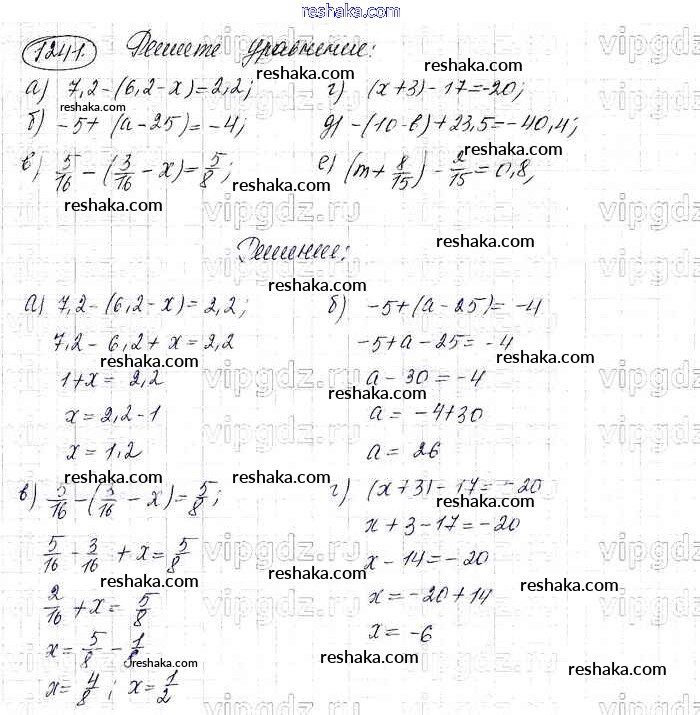 reshaka.com
1241. Решите уравнение:
а) 7,2-(6,2-x)=2,2; г) (x+3)-17=-20;
б) -5+(a-25)=-4; д) -(10-b)+23,5=-40,4;
в) 5/16-(3/16-x)=5/8; е) (m+8/15)-2/15=0,8;
Решение:
а) 7,2-(6,2-x)=2,2;
7,2-6,2+x=2,2
1+x=2,2
x=2,2-1
x=1,2
б) -5+(a-25)=-4
-5+a-25=-4
a-30=-4
a=-4+30
a=26
в) 5/16-(3/16-x)=5/8;
5/16-3/16+x=5/8
2/16+x=5/8
x=5/8-1/8
x=4/8; x=1/2
г) (x+3)-17=-20
x+3-17=-20
x-14=-20
x=-20+14
x=-6
vipgdz.ru